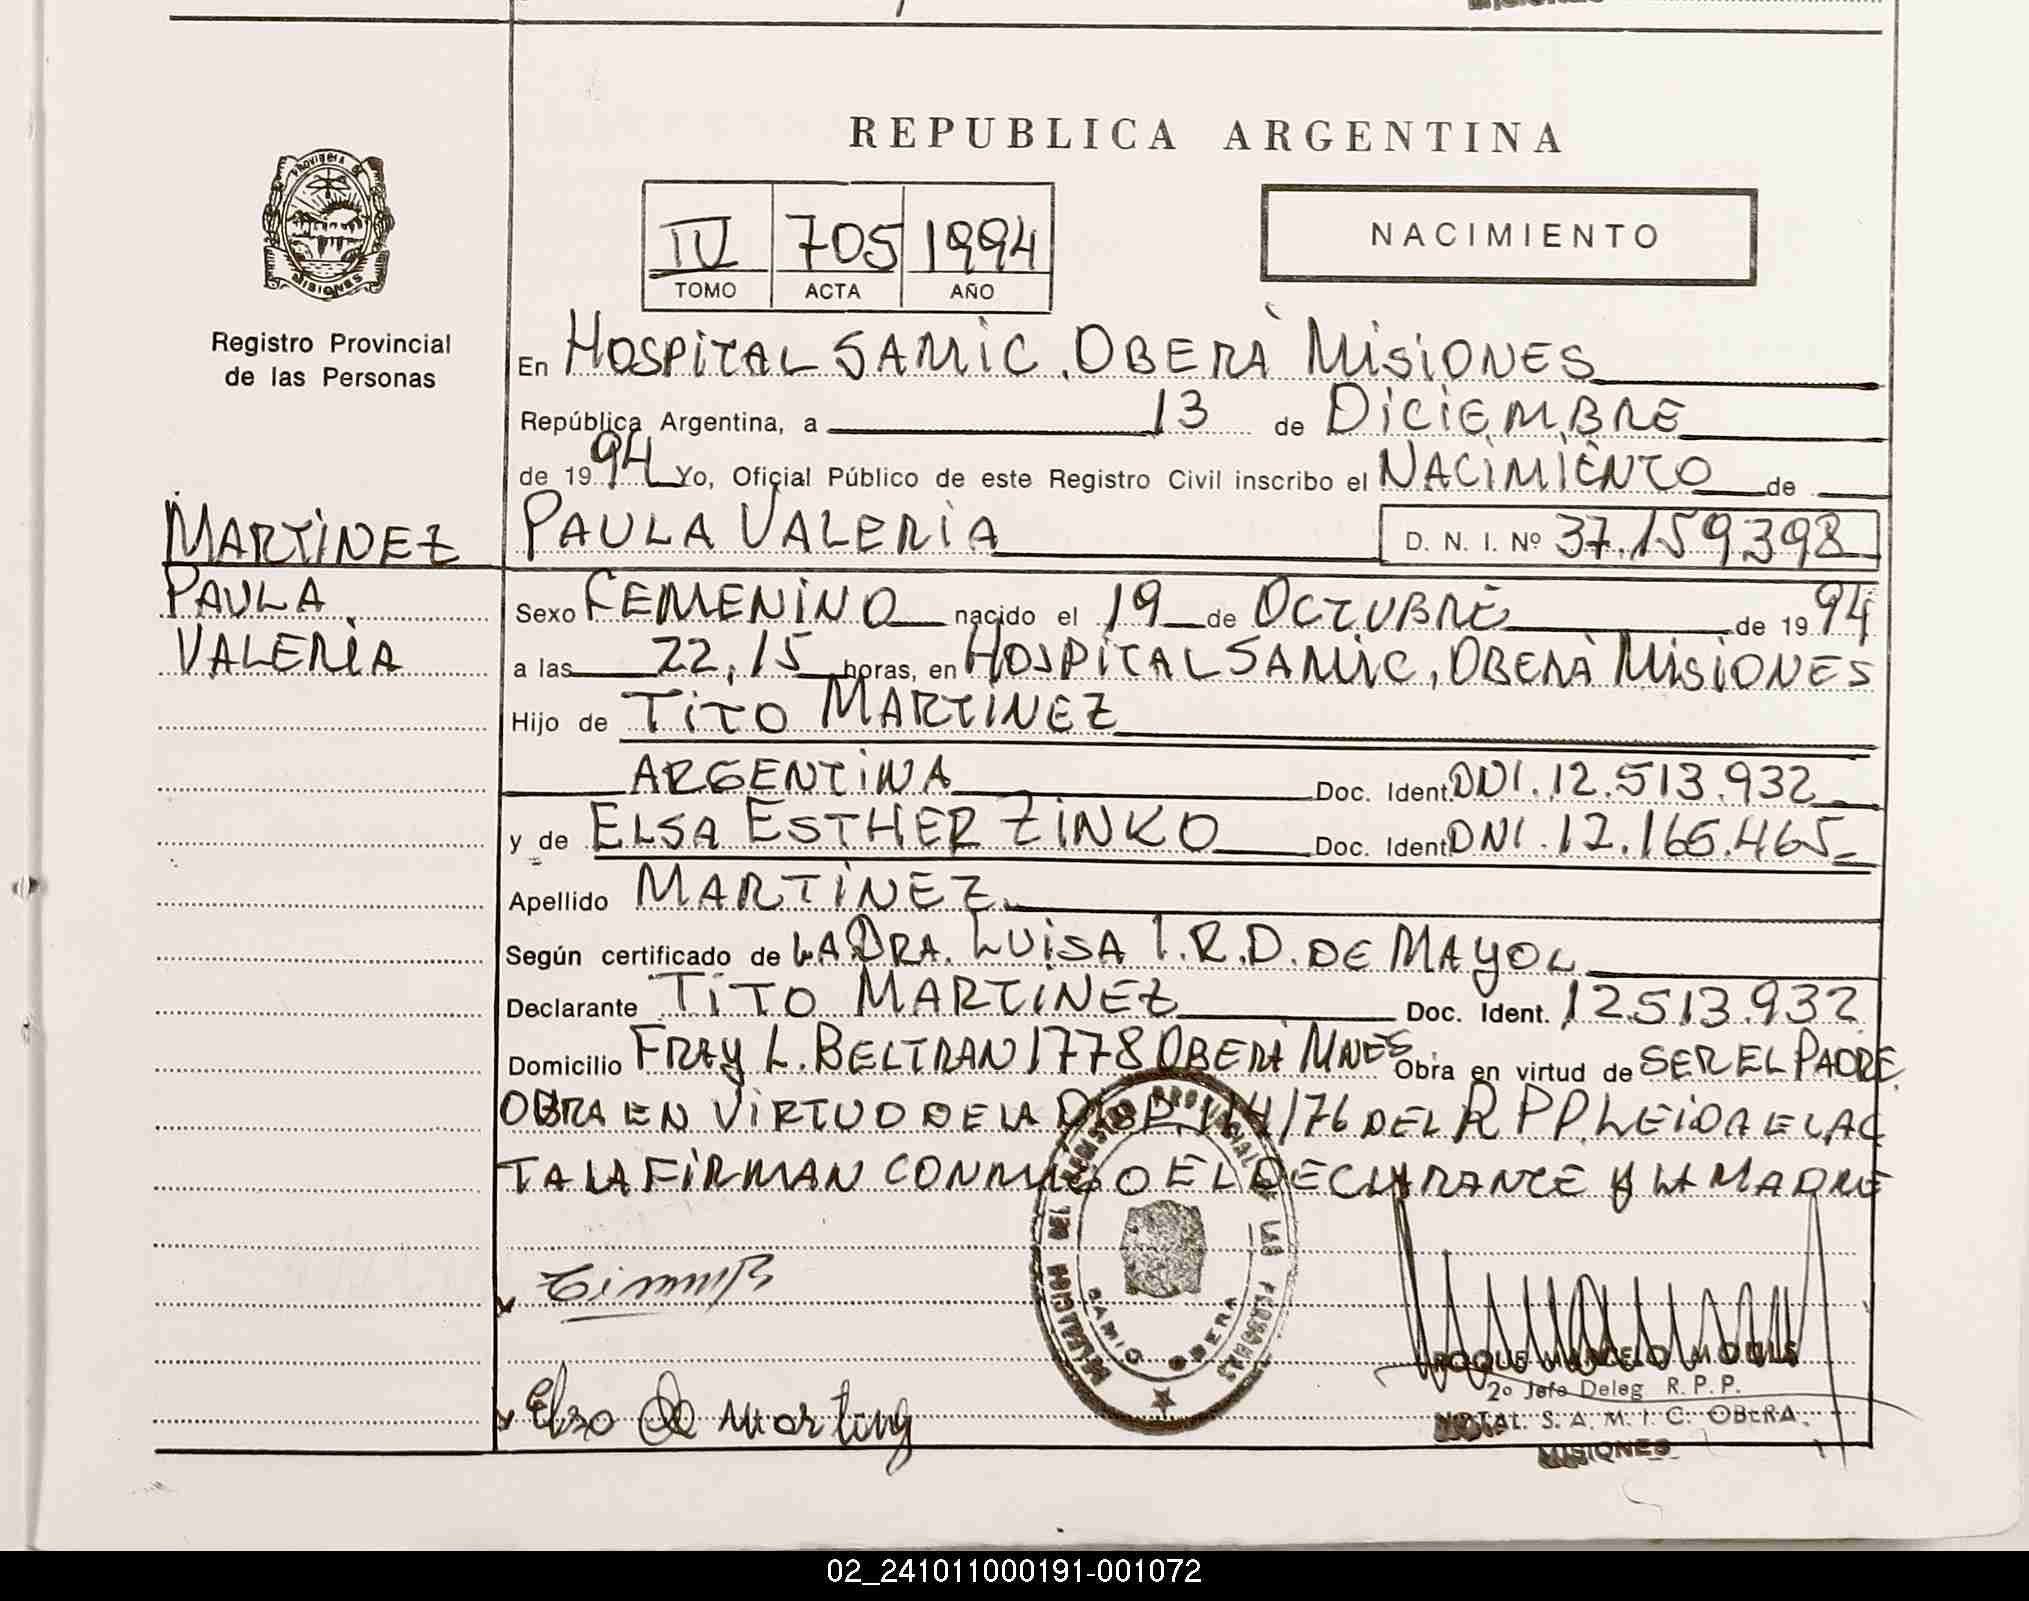 REPUBLICA ARGENTINA
PROVINCIA DE
MISIONES
Registro Provincial
de las Personas
IV 705 1994
TOMO ACTA AÑO
NACIMIENTO
En HOSPITAL SAMIC, OBERÀ MISIONES
República Argentina, a 13 de DICIEMBRE
de 1994 Yo, Oficial Público de este Registro Civil inscribo el NACIMIENTO de
MARTINEZ
PAULA
VALERIA
PAULA VALERIA D. N. I. Nº 37.159.398
Sexo FEMENINO nacido el 19 de OCTUBRE de 1994
a las 22,15 horas, en HOSPITAL SAMIC, OBERÀ MISIONES
Hijo de TITO MARTINEZ
ARGENTINA Doc. Ident. DNI. 12.513.932
y de ELSA ESTHER ZINKO Doc. Ident. DNI. 12.165.465
Apellido MARTINEZ
Según certificado de LA DRA. LUISA I.R.D. DE MAYOL
Declarante TITO MARTINEZ Doc. Ident. 12.513.932
Domicilio FRAY L. BELTRAN 1778 OBERÁ MNES Obra en virtud de SER EL PADRE,
OBRA EN VIRTUD DE LA DISP. /76 DEL R P P. LEIDA EL AC
TA LA FIRMAN CONMIGO EL DECLARANTE Y LA MADRE
REGISTRO PROVINCIAL DE LAS PERSONAS
DELEGACION
SAMIC OBERA
Elsa de Martinez
ROQUE
2º Jefe Deleg R. P. P.
S. A. M. I. C. OBERA
MISIONES
02_241011000191-001072